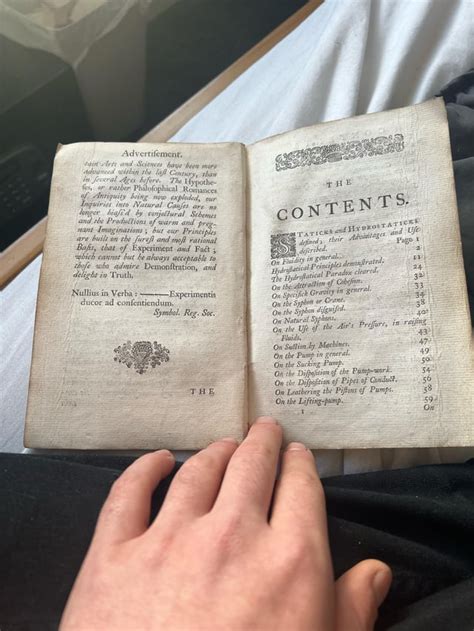 Advertiſement.
tain Arts and Sciences have been more
advanced within the laſt Century, than
in ſeveral Ages before. The Hypothe-
ſes, or rather Philoſophical Romances
of Antiquity being now exploded, our
Inquiries into Natural Cauſes are no
longer biaſs'd by conjectural Schemes
and the Productions of warm and preg-
nant Imaginations; but our Principles
are built on the ſureſt and moſt rational
Baſis, that of Experiment and Fact;
which cannot but be always acceptable to
thoſe who admire Demonſtration, and
delight in Truth.
Nullius in Verba: —— Experimentis
ducor ad conſentiendum.
Symbol. Reg. Soc.
THE
THE
CONTENTS.
STATICKS and HYDROSTATICKS
defined; their Advantages and Uſe
deſcribed. Page 1
On Fluidity in general. 2
Hydroſtatical Principles demonſtrated.
The Hydroſtatical Paradox cleared.
On the Attraction of Coheſion.
On Specifick Gravity in general.
On the Syphon or Crane.
On the Syphon diſguiſed.
On Natural Syphons.
On the Uſe of the Air's Preſſure, in raiſing
Fluids. 43
On Suction by Machines. 47
On the Pump in general. 49
On the Sucking Pump. 50
On the Diſpoſition of the Pump-work. 54
On the Diſpoſition of Pipes of Conduct. 56
On Leathering the Piſtons of Pumps. 58
On the Lifting-pump. 59
On